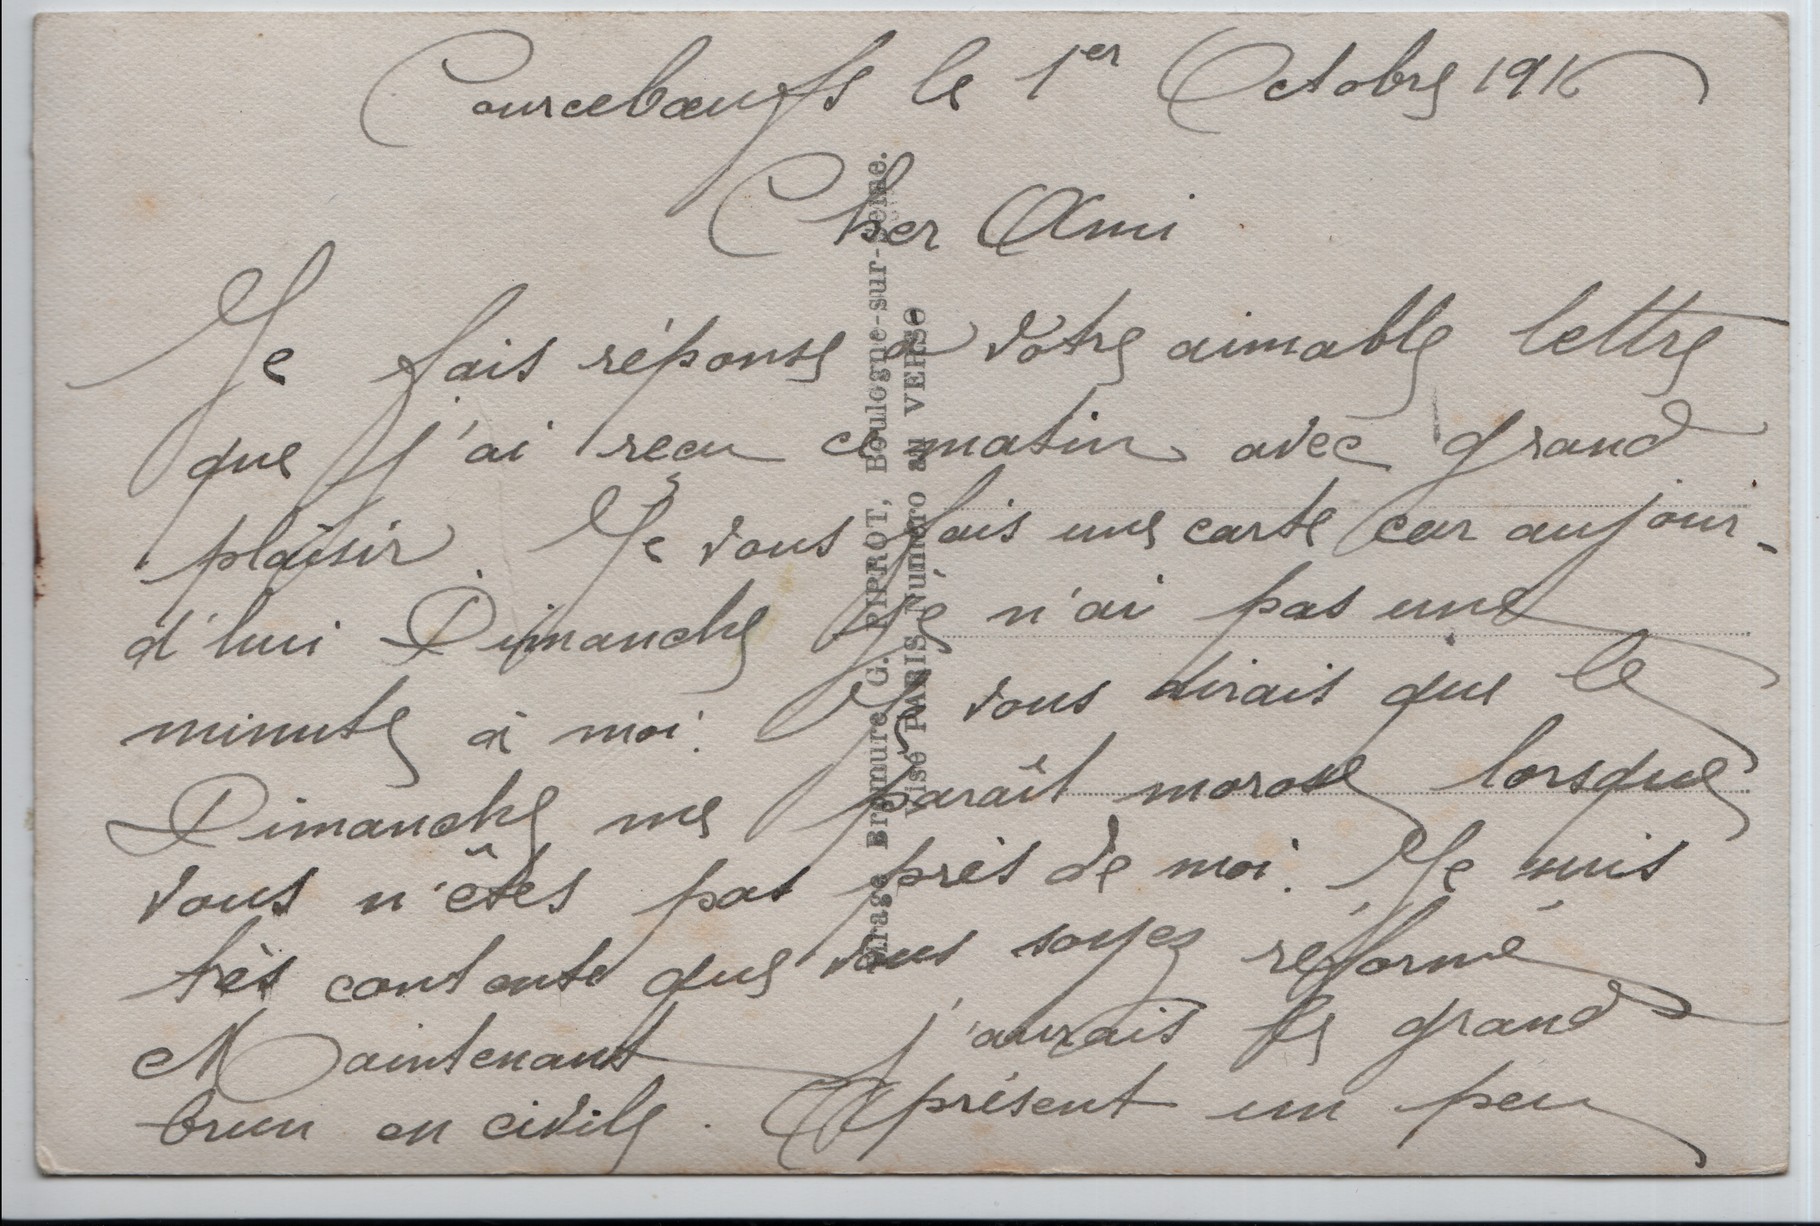 Courcebœufs le 1er Octobre 1916
Cher Ami
Je fais réponse à votre aimable lettre
que j'ai reçu ce matin avec grand
plaisir. Je vous fais une carte car aujour-
d'hui Dimanche je n'ai pas une
minute à moi. Je vous dirais que le
Dimanche me paraît morose lorsque
vous n'êtes pas près de moi. Je suis
très contente que vous soyez réformé
Maintenant j'aurais le grand
brun en civile. Aprésent un peu
Tirage Bromure G. PIPROT, Boulogne-sur-Seine.
Visé PARIS Numéro au VERSO